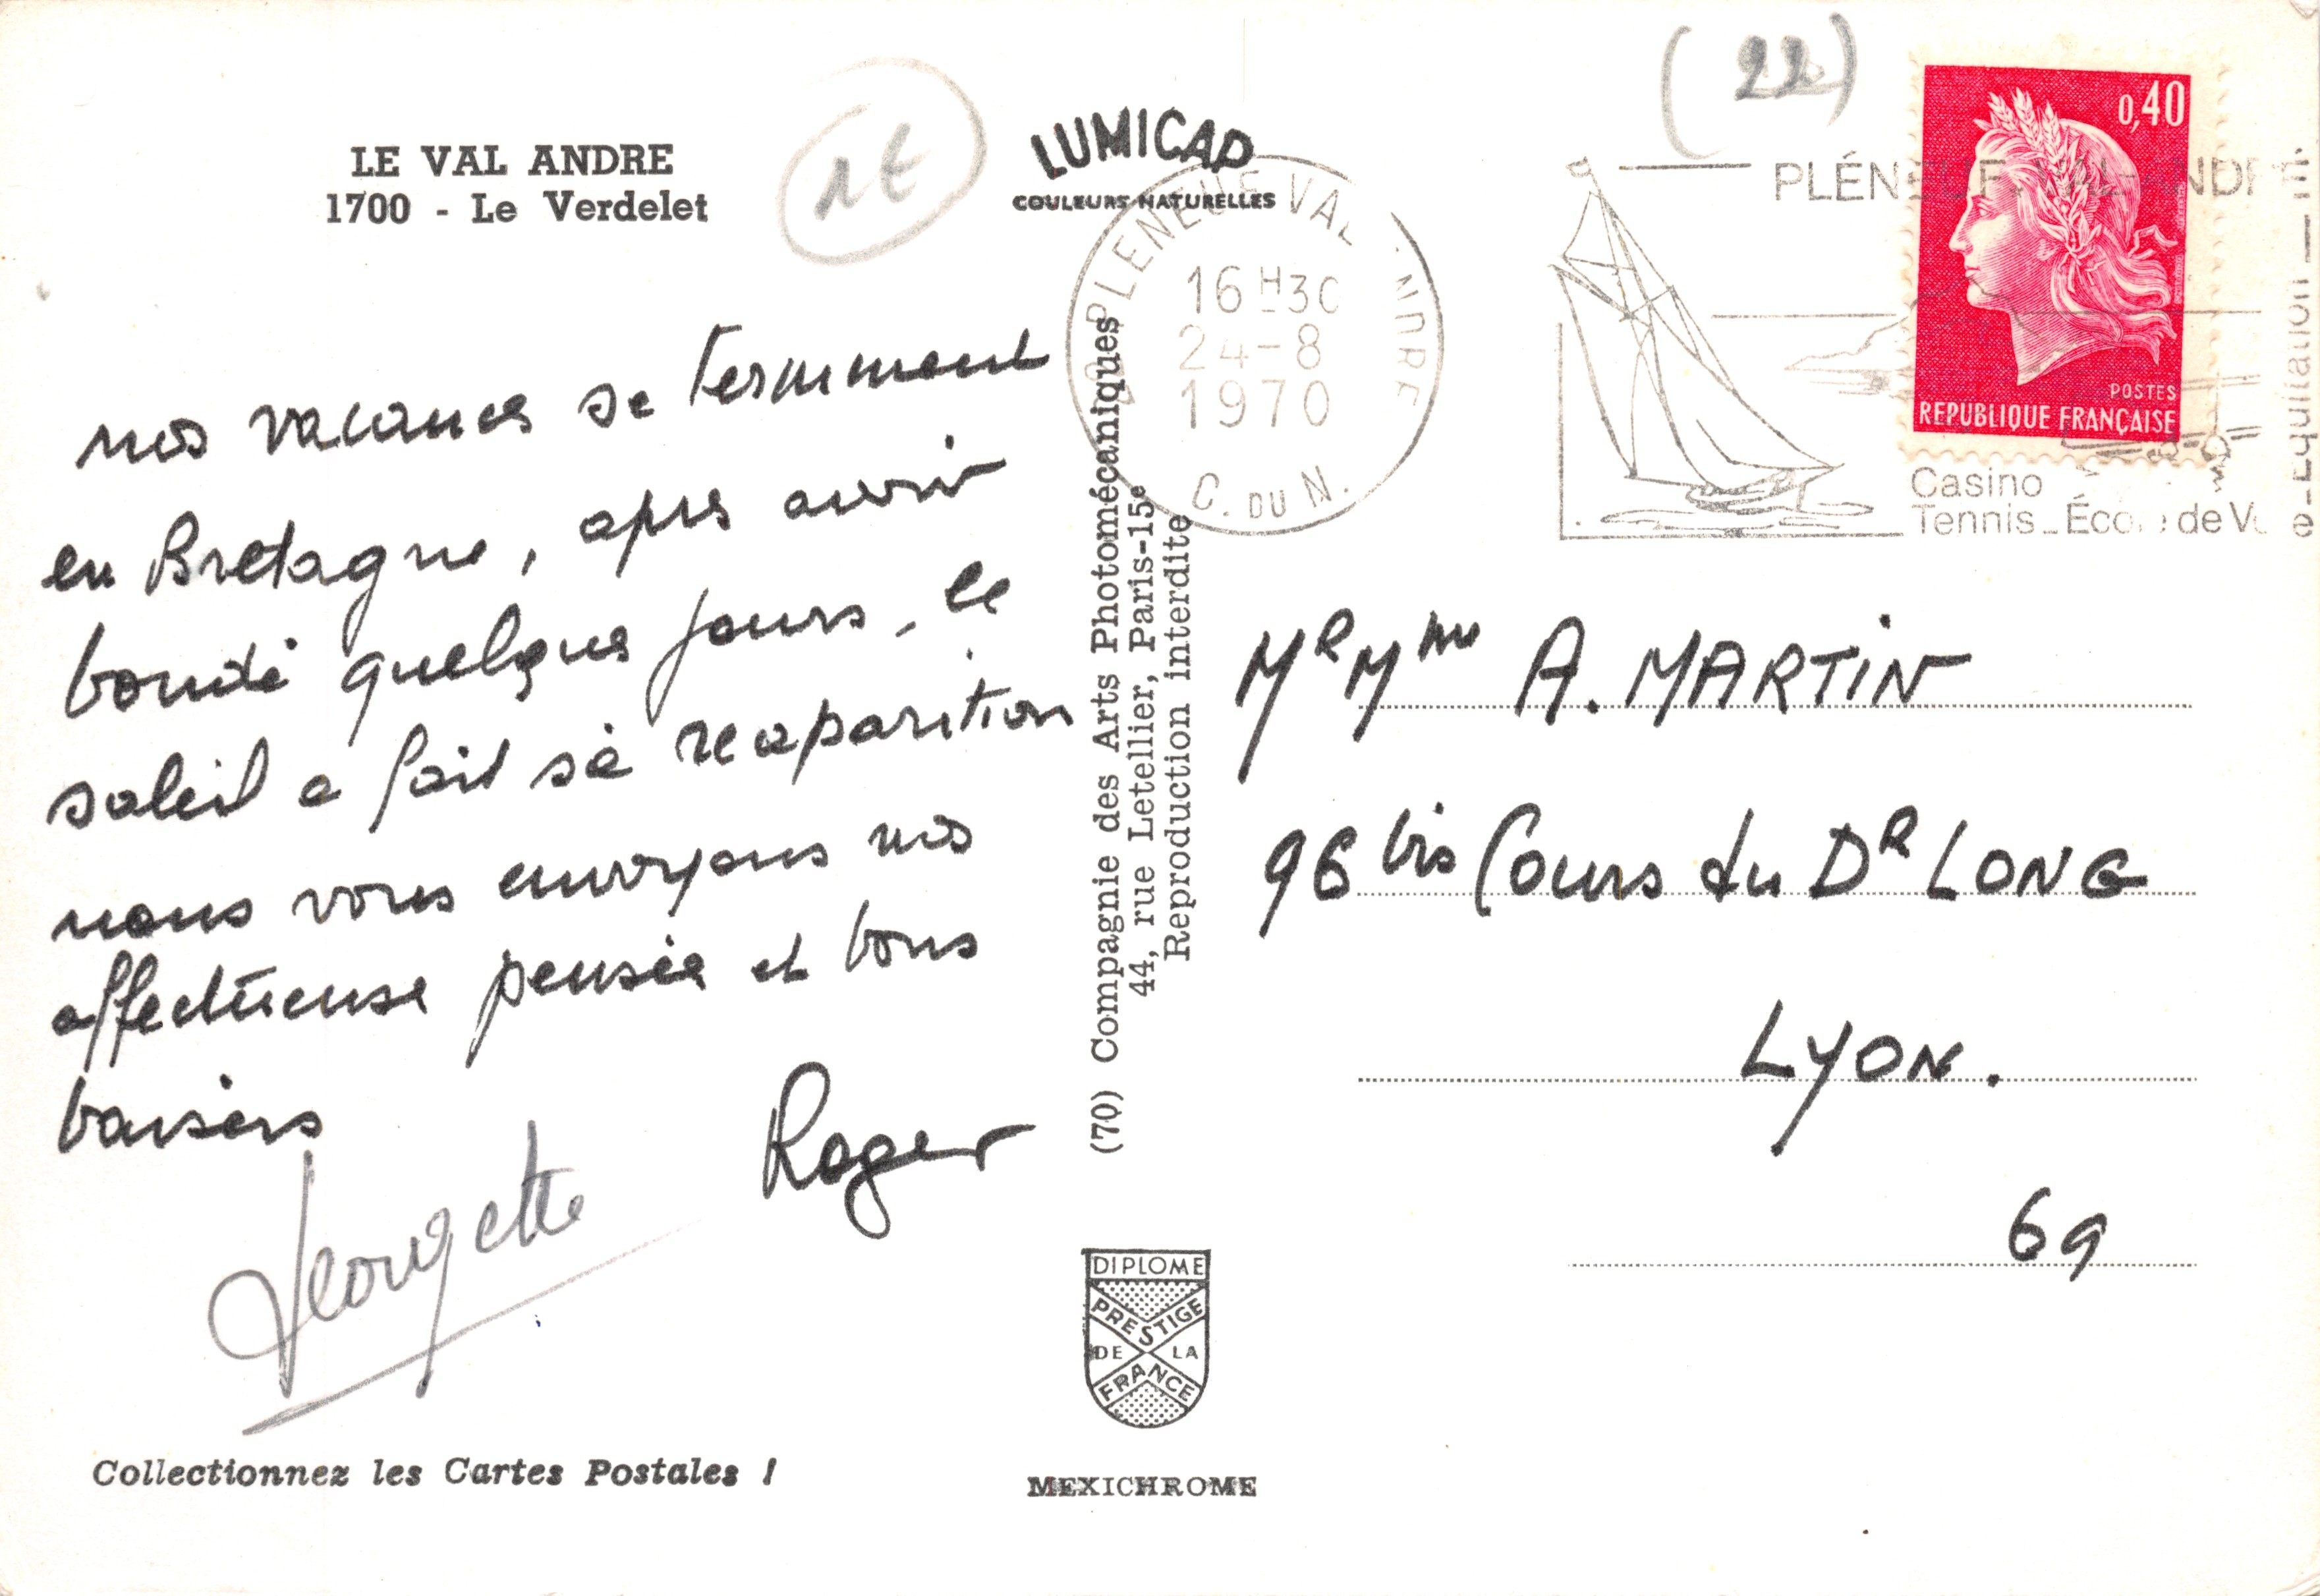 LE VAL ANDRE
1700 - Le Verdelet
1€
LUMICAP
COULEURS NATURELLES
(22)
0,40
POSTES
REPUBLIQUE FRANÇAISE
PLÉNEUF-VAL-ANDRÉ
16 H30
24-8
1970
C. DU N.
PLÉNEUF-VAL-ANDR
Casino
Tennis_École de V
e_Equitation
nos vacances se terminent
en Bretagne, apres avoir
boudé quelques jours, le
soleil a fait sa reaparition
nous vous envoyons nos
affectueuse pensée et bons
baisers
Roger
Georgette
(70) Compagnie des Arts Photomécaniques
44, rue Letellier, Paris-15e
Reproduction interdite
Mr Mme A. MARTIN
96 bis Cours du Dr LONG
LYON.
69
DIPLOME
PRESTIGE
DE LA
FRANCE
Collectionnez les Cartes Postales !
MEXICHROME